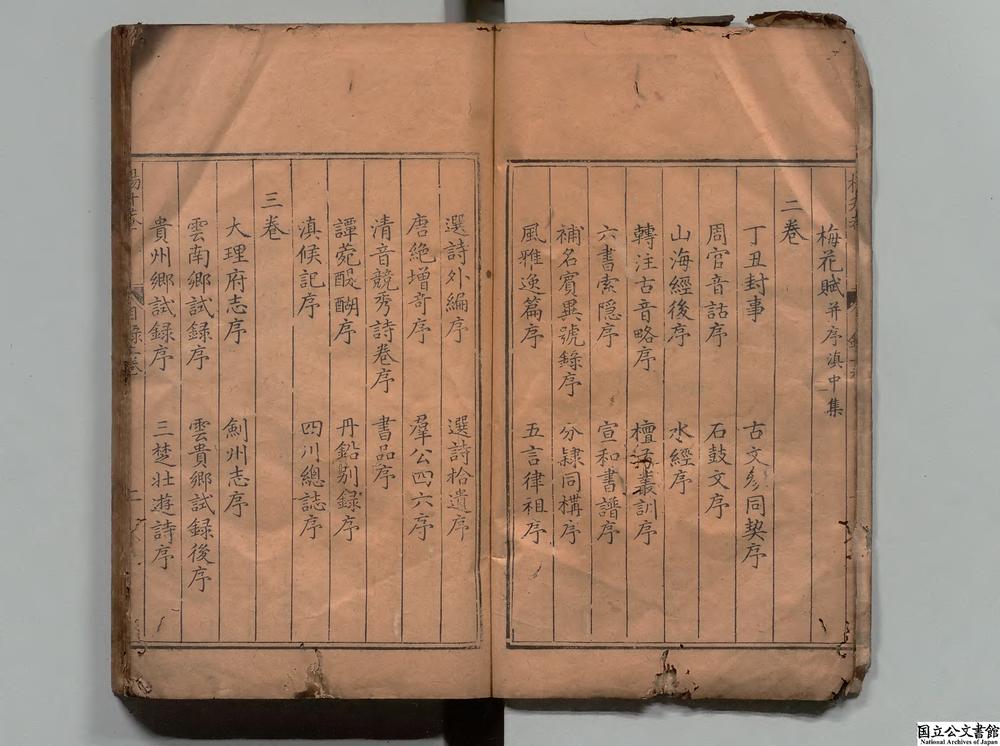 梅花賦 并序滇中集
二卷
丁丑封事 古文參同契序
周官音詁序 石鼓文序
山海經後序 水經序
轉注古音略序 檀弓叢訓序
六書索隱序 宣和書譜序
補名賓異號錄序 分隸同構序
風雅逸篇序 五言律祖序
選詩外編序 選詩拾遺序
唐絶增奇序 羣公四六序
清音競秀詩卷序 書品序
譚菀醍醐序 丹鉛別録序
滇候記序 四川總誌序
三卷
大理府志序 劍州志序
雲南鄉試録序 雲貴鄉試録後序
貴州鄉試録序 三楚壯遊詩序
国立公文書館
National Archives of Japan